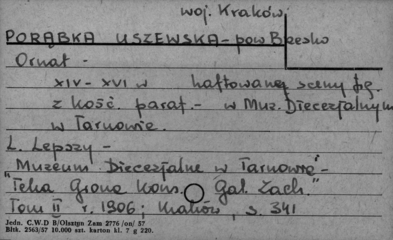 woj. Kraków
PORĄBKA USZEWSKA - pow Brzesko
Ornat -
XIV - XVI w haftowanej sceny fig.
z kość. paraf. - w Muz. Diecezjalnym
w Tarnowie.
L. Lepszy -
"Muzeum Diecezjalne w Tarnowie" -
"Teka Grona Kons. Gal. Zach."
Tom II r. 1906: Kraków, s. 341
Jedn. C.W.D B/Olsztyn Zam 2776 /on/ 57
Blbt. 2563/57 10.000 szt. karton kl. 7 g 220.